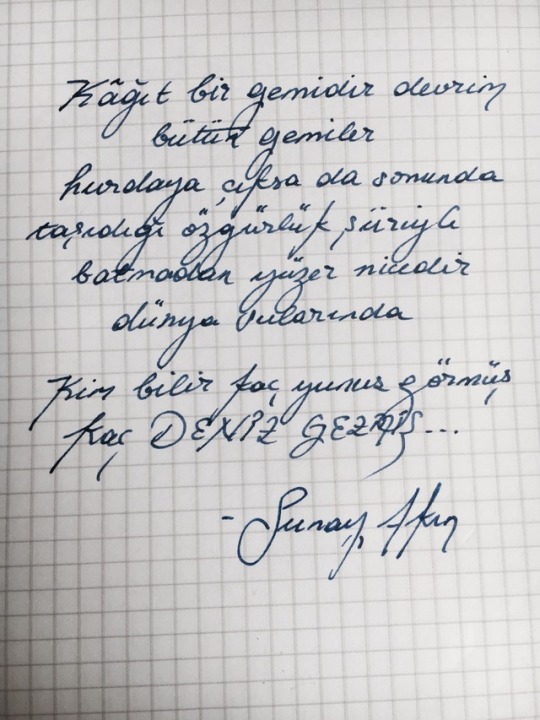 Kâğıt bir gemidir devrim
bütün gemiler
hurdaya çıksa da sonunda
taşıdığı özgürlük şiiriyle
batmadan yüzer nicedir
dünya sularında
Kim bilir kaç yunus görmüş
kaç DENİZ GEZMİŞ...
- Sunay Akın